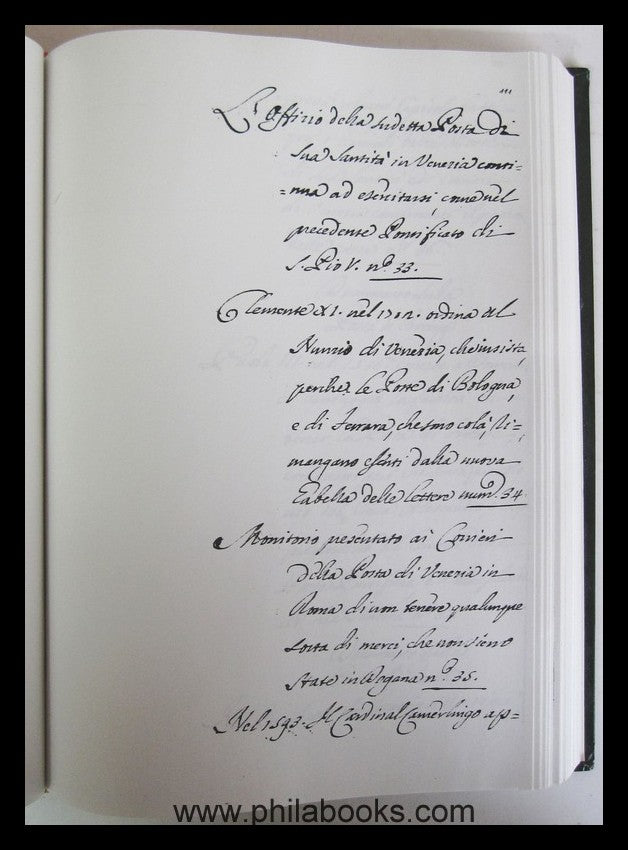 111
L'Offizio della sudetta Posta di
sua Santità in Venezia conti=
=nua ad esercitarsi, come nel
precedente Pontificato di
S. Pio V. n.º 33.
Clemente XI. nel 1702. ordina al
Nunzio di Venezia, che insista,
perche le Poste di Bologna,
e di Ferrara, che sono colà, ri=
mangano esenti dalla nuova
Tabella delle lettere num.º 34.
Monitorio presentato ai Corrieri
della Posta di Venezia in
Roma di non tenere qualunque
sorta di merci, che non sieno
state in Dogana n.º 35.
Nel 1593. Il Cardinal Camerlingo ap=
www.philabooks.com